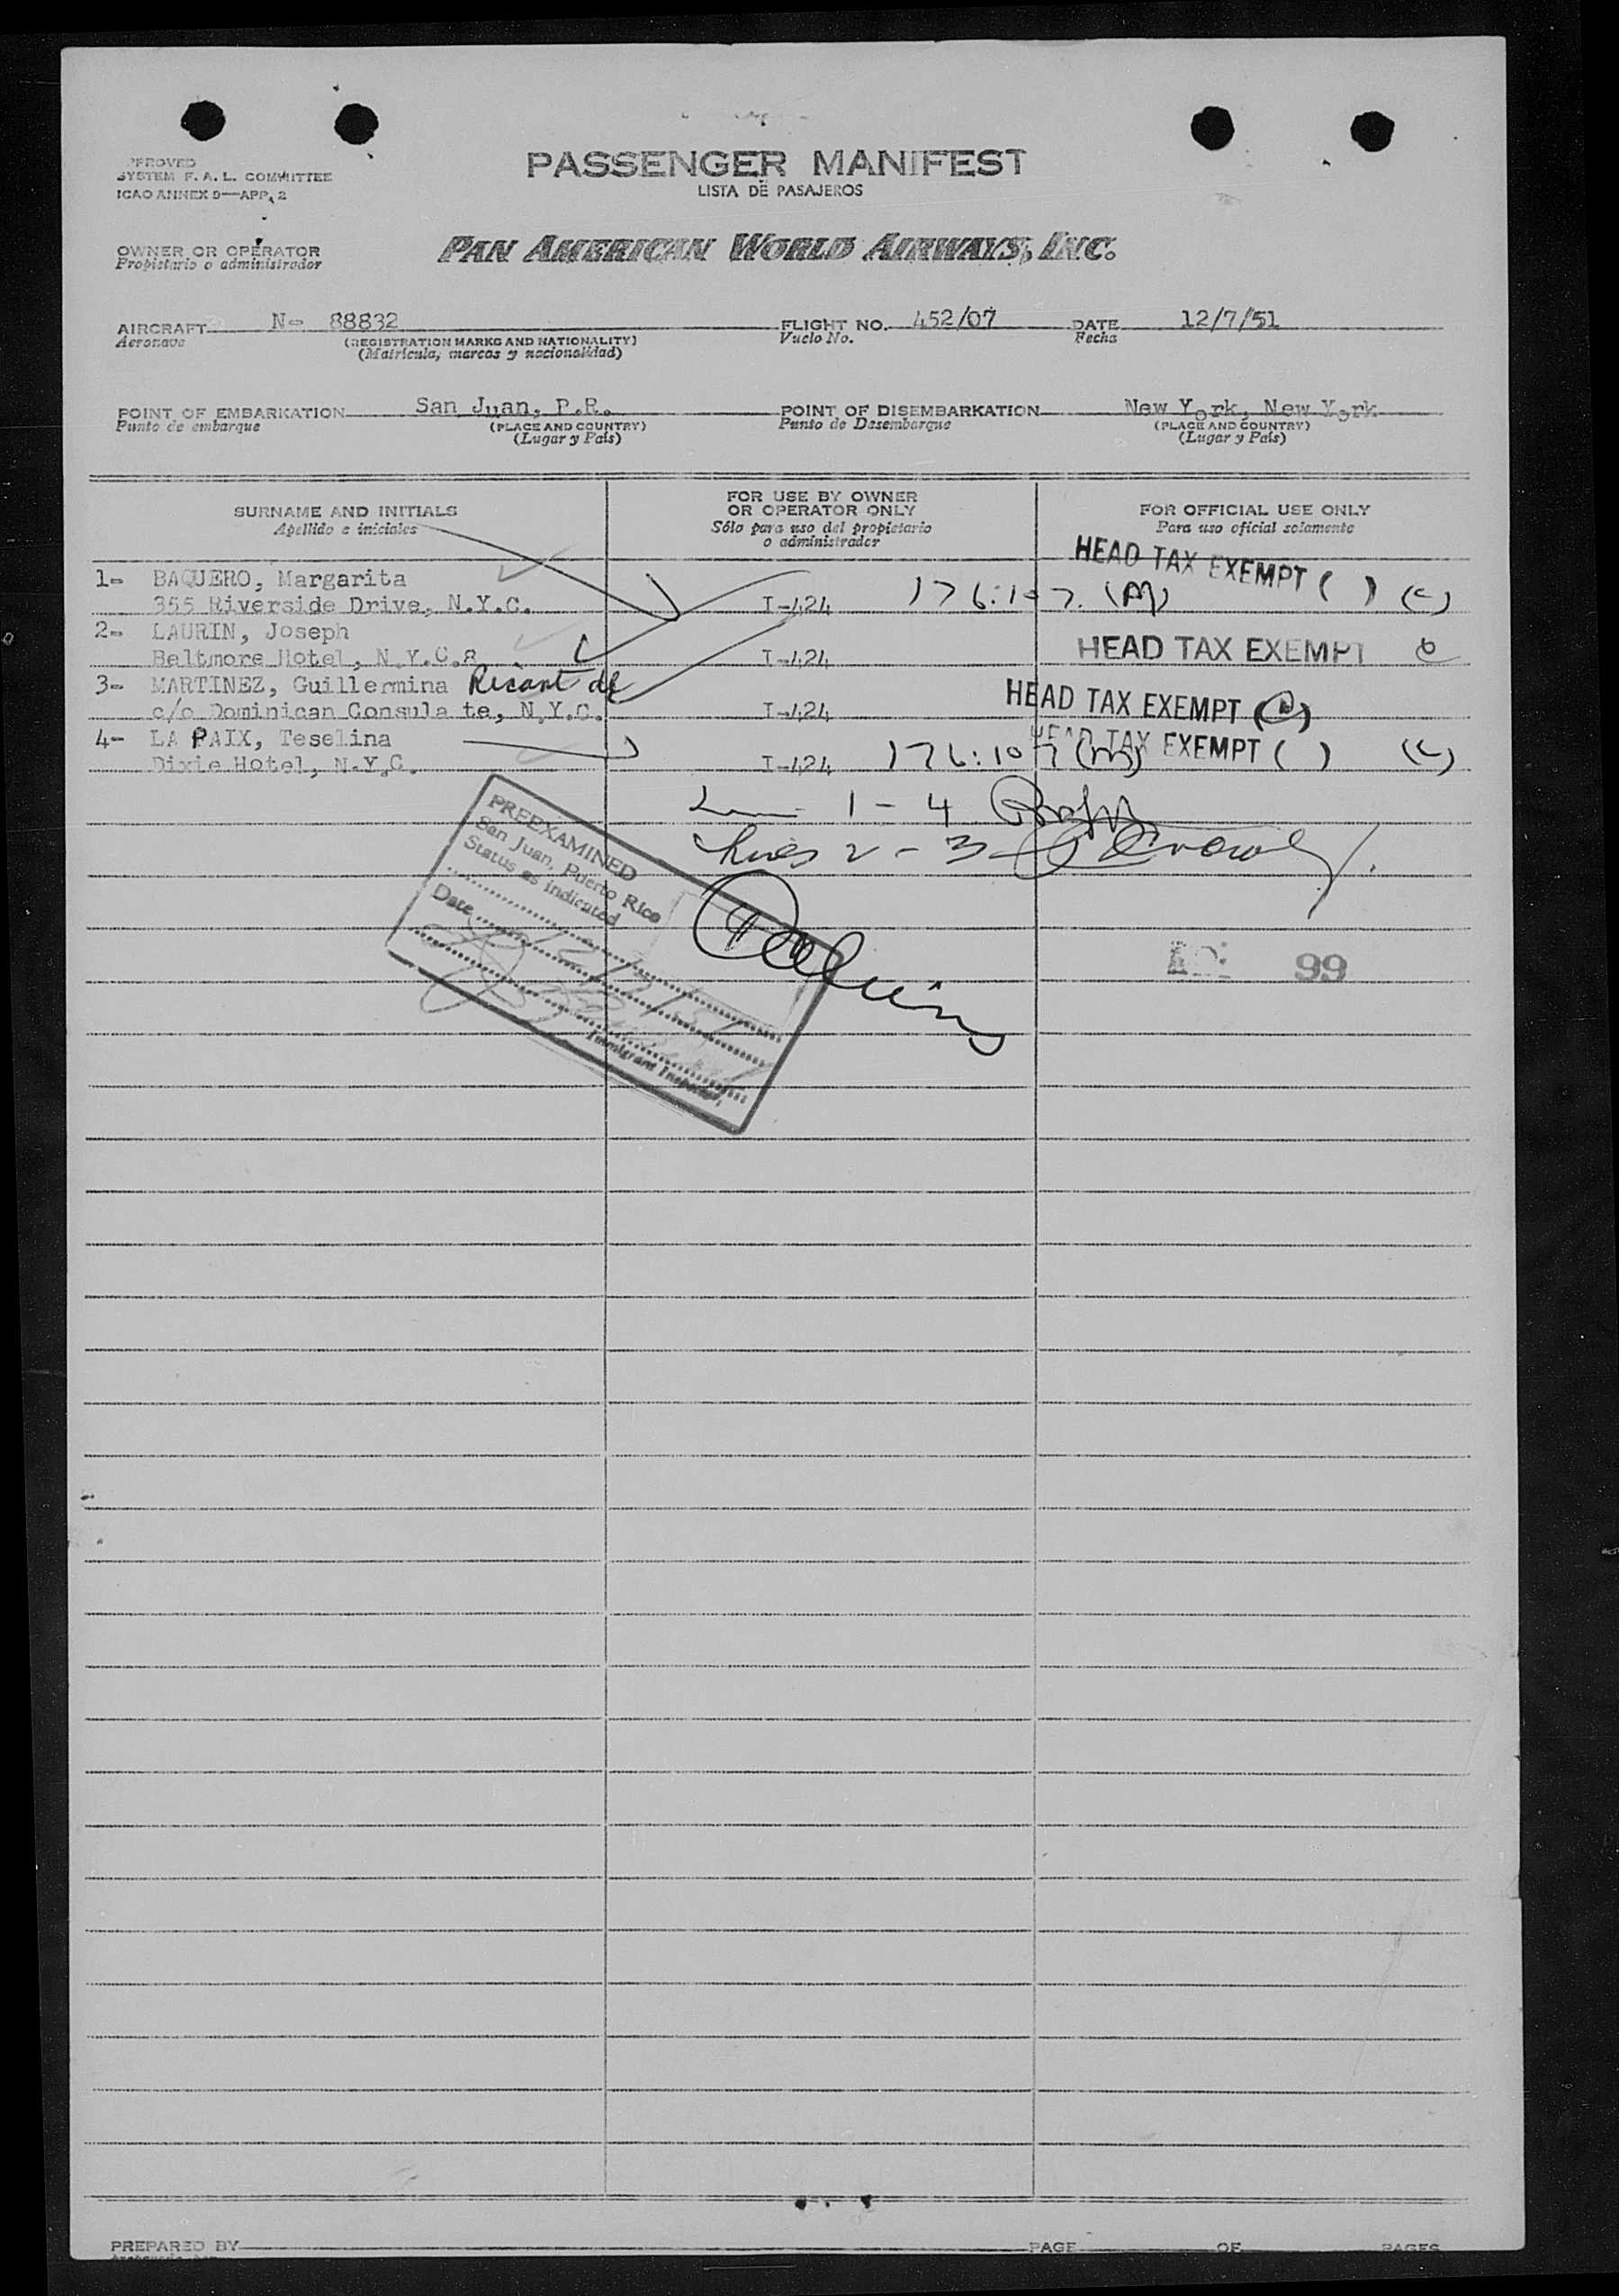 PASSENGER MANIFEST
LISTA DE PASAJEROS
PROVED
SYSTEM F. A. L. COMMITTEE
ICAO ANNEX 9—APP. 2
OWNER OR OPERATOR
Propietario o administrador
PAN AMERICAN WORLD AIRWAYS, INC.
AIRCRAFT N- 88832 FLIGHT NO. 452/07 DATE 12/7/51
Aeronave (REGISTRATION MARKS AND NATIONALITY) Vuelo No. Fecha
(Matrícula, marcas y nacionalidad)
POINT OF EMBARKATION San Juan, P.R. POINT OF DISEMBARKATION New York, New York
Punto de embarque (PLACE AND COUNTRY) Punto de Desembarque (PLACE AND COUNTRY)
(Lugar y País) (Lugar y País)
SURNAME AND INITIALS FOR USE BY OWNER OR OPERATOR ONLY FOR OFFICIAL USE ONLY
Apellido e iniciales Sólo para uso del propietario o administrador Para uso oficial solamente
HEAD TAX EXEMPT ( ) (c)
1- BAQUERO, Margarita
355 Riverside Drive, N.Y.C. I-424 176:107. (M)
2- LAURIN, Joseph
Beltmore Hotel, N.Y.C. I-424 HEAD TAX EXEMPT
3- MARTINEZ, Guillermina Ricart de
c/o Dominican Consula te, N.Y.C. I-424 HEAD TAX EXEMPT
4- LA PAIX, Teselina HEAD TAX EXEMPT ( ) (c)
Dixie Hotel, N.Y.C. I-424 176:107 (M)
1 - 4
Lines 2 - 3
PREEXAMINED
San Juan, Puerto Rico
Status as indicated
Date
Immigrant Inspector
99
PREPARED BY PAGE OF PAGES